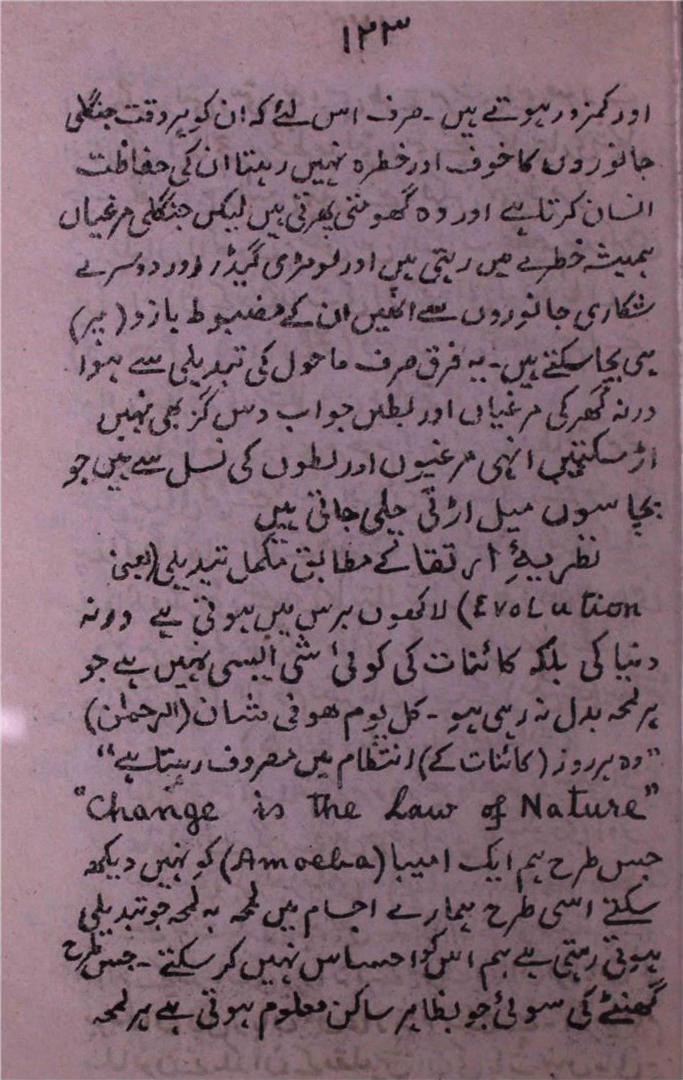 ۱۲۳
اور کمزور ہوتے ہیں ۔ صرف اس لئے کہ ان کو ہر وقت جنگلی
جانوروں کا خوف اور خطرہ نہیں رہتا ان کی حفاظت
انسان کرتا ہے اور وہ گھومتی پھرتی ہیں لیکن جنگلی مرغیاں
ہمیشہ خطرے میں رہتی ہیں اور لومڑی گیڈر اور دوسرے
شکاری جانوروں سے انہیں ان کے مضبوط بازو (پر)
ہی بچا سکتے ہیں ۔ یہ فرق صرف ماحول کی تبدیلی سے ہوا
ورنہ گھر کی مرغیاں اور بطیں جو اب دس گز بھی نہیں
اڑ سکتیں انہی مرغیوں اور بطوں کی نسل سے ہیں جو
پچاسوں میل اڑتی چلی جاتی ہیں
نظریۂ ارتقا کے مطابق مکمل تبدیلی (یعنی
Evolution) لاکھوں برس میں ہوتی ہے ورنہ
دنیا کی بلکہ کائنات کی کوئی شی ایسی نہیں ہے جو
ہر لمحہ بدل نہ رہی ہو ۔ کل یوم ھو فی شان (الرحمٰن)
“وہ ہر روز (کائنات کے) انتظام میں مصروف رہتا ہے”
"Change is the Law of Nature"
جس طرح ہم ایک امیبا (Amoeba) کو نہیں دیکھ
سکتے اسی طرح ہمارے اجسام میں لمحہ بہ لمحہ جو تبدیلی
ہوتی رہتی ہے ہم اس کا احساس نہیں کر سکتے ۔ جس طرح
گھنٹے کی سوئی جو بظاہر ساکن معلوم ہوتی ہے ہر لمحہ